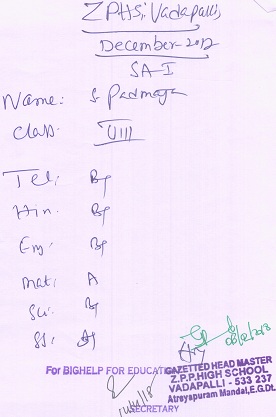 ZPHS, Vadapalli,
December-2012
SA-I
Name: S. Padmaja
Class: VIII
Tel: B+
Hin. B+
Eng. B+
Mat: A
Sci: B+
SS:
For BIGHELP FOR EDUCATION
SECRETARY
GAZETTED HEAD MASTER
Z.P.P.HIGH SCHOOL
VADAPALLI - 533 237
Atreyapuram Mandal,E.G.Dt.